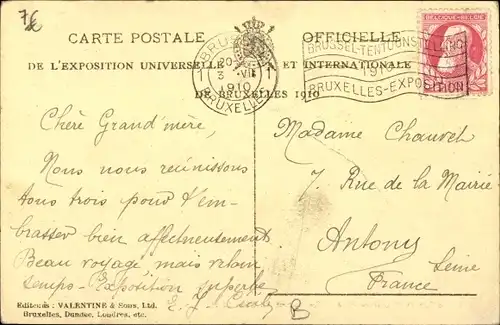 7€
CARTE POSTALE OFFICIELLE
DE L'EXPOSITION UNIVERSELLE ET INTERNATIONALE
DE BRUXELLES 1910
BRUXELLES
1 1
3 VII
1910
BRUXELLES
BRUSSEL-TENTOONSTELLING
1910
BRUXELLES-EXPOSITION
BELGIQUE-BELGIE
Chère Grand'mère,
Nous nous réunissons
tous trois pour t'em-
brasser bien affectueusement
Beau voyage mais vilain
temps - Exposition superbe
E. J.
Madame Chauvet
7, Rue de la Mairie
Antony
Seine
France
Editeurs : VALENTINE & SONS, Ltd.
Bruxelles, Dundee, Londres, etc.
B